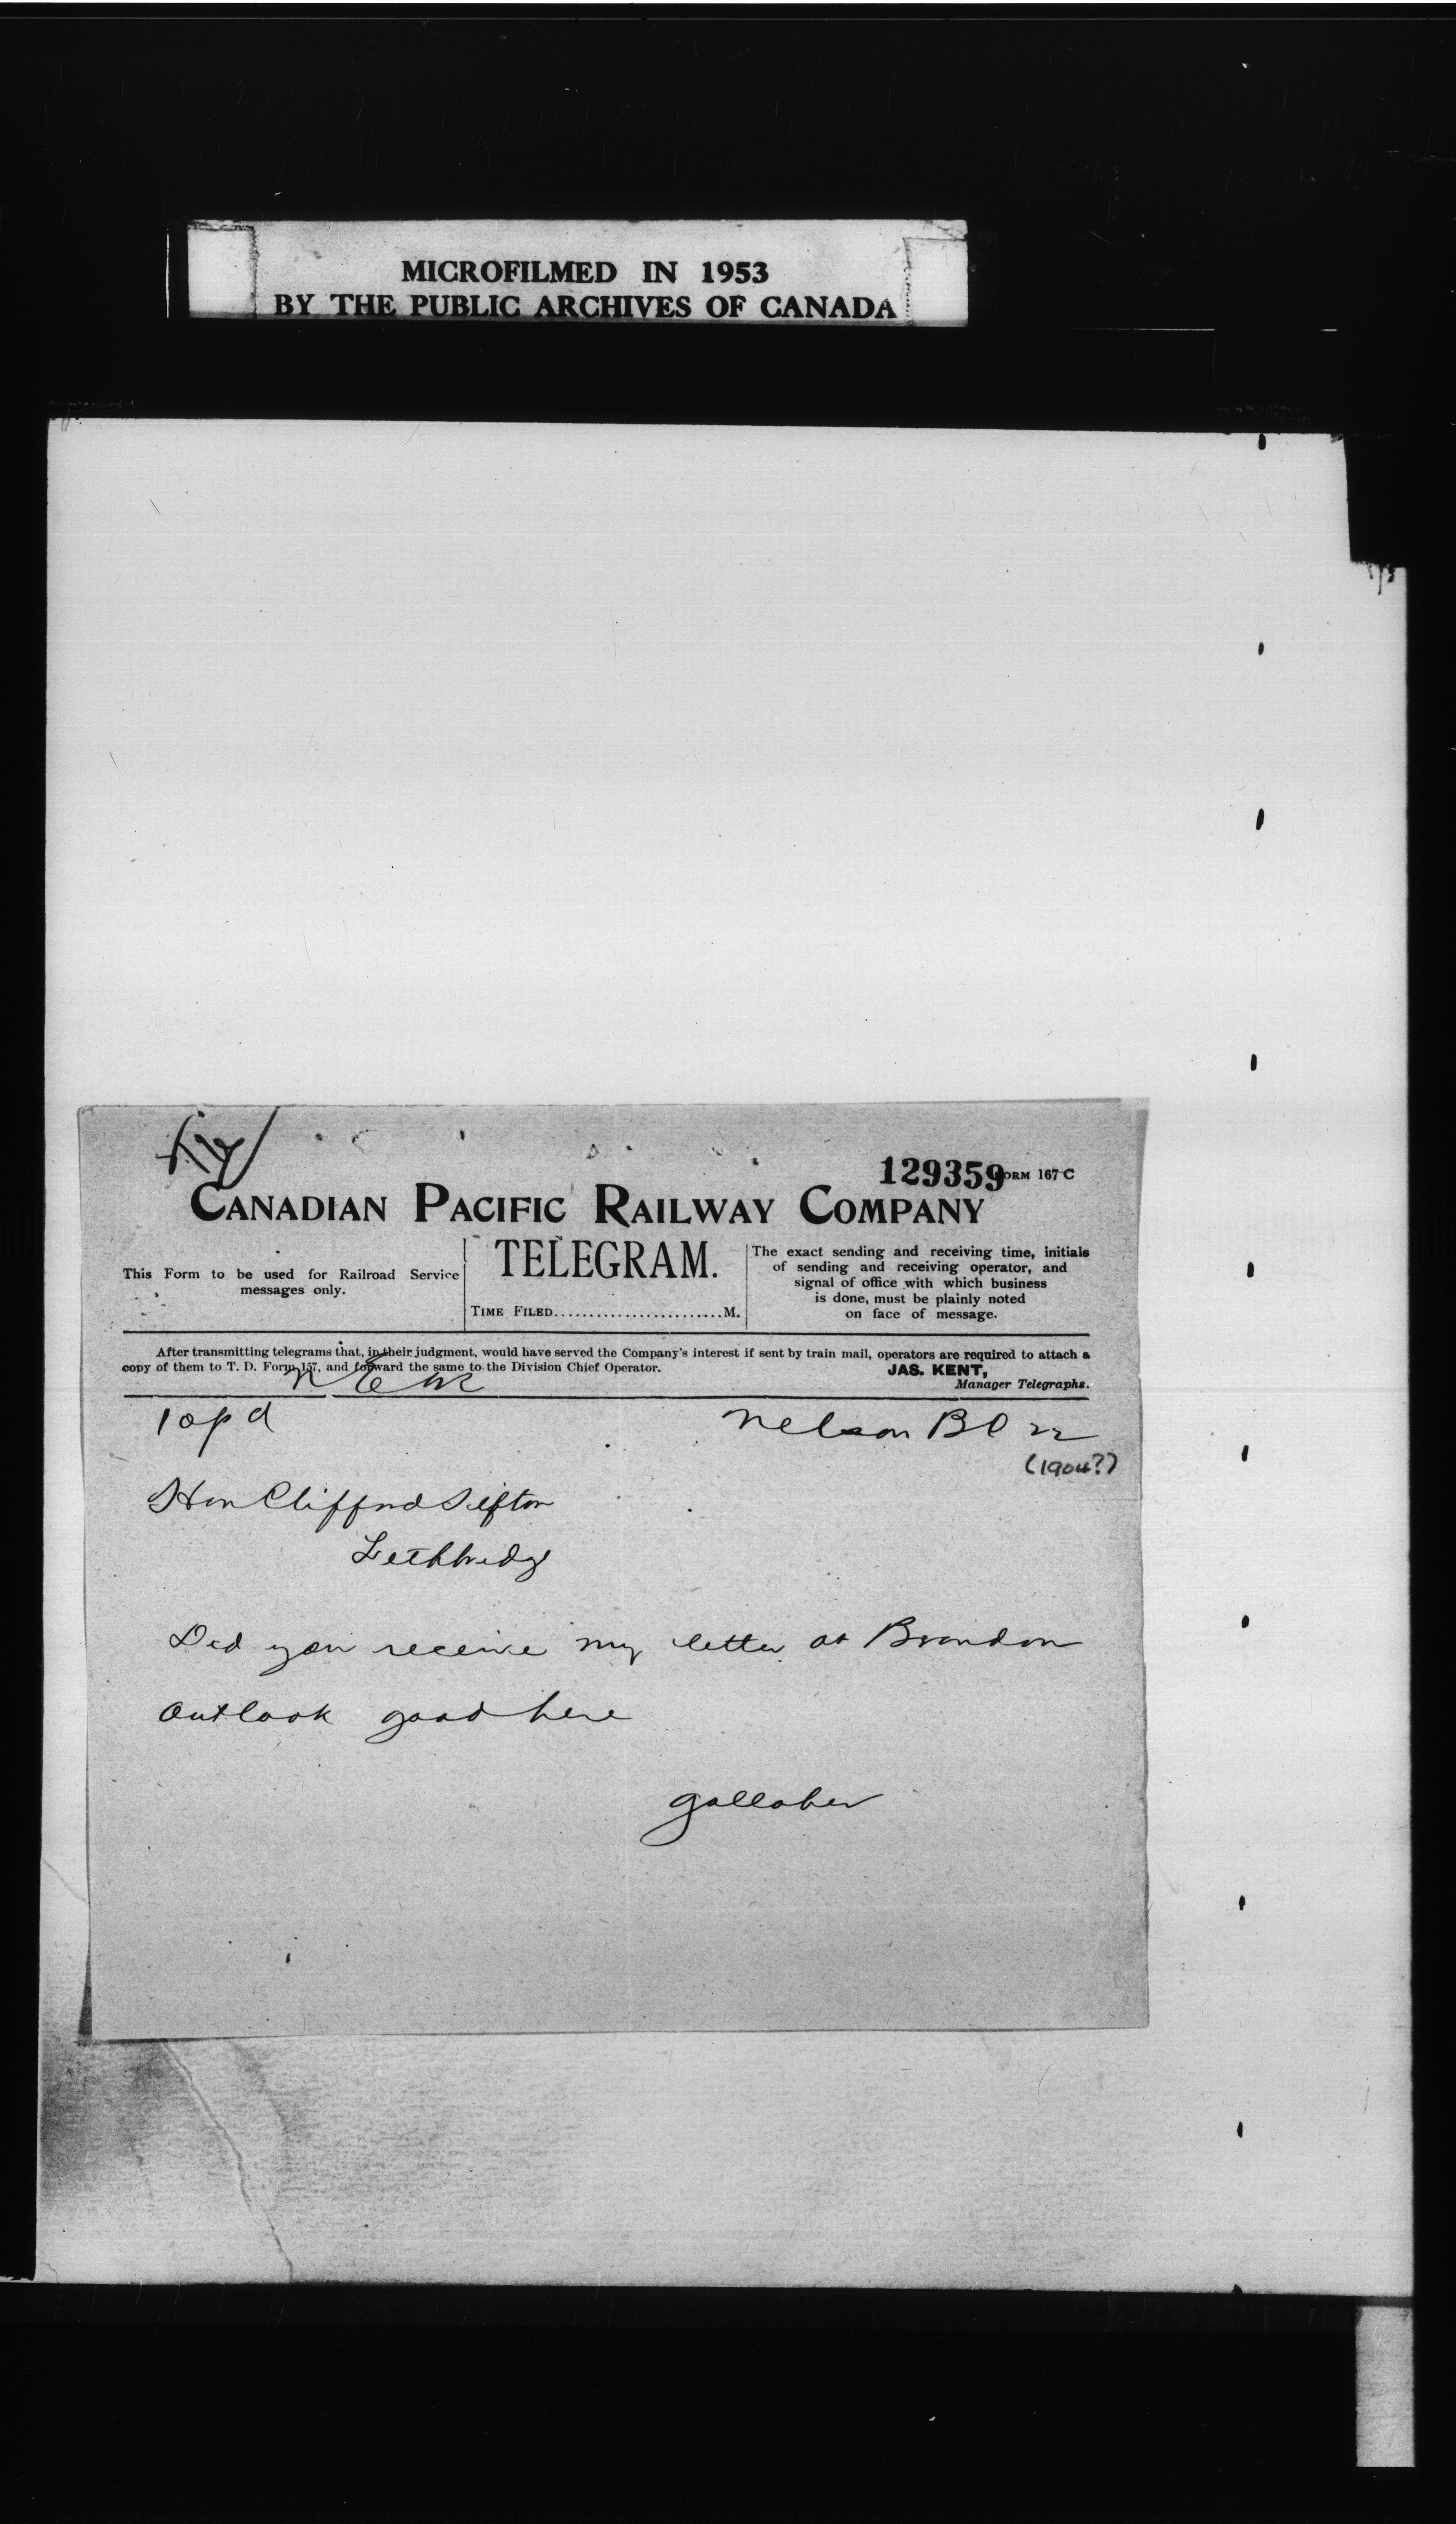 MICROFILMED IN 1953
BY THE PUBLIC ARCHIVES OF CANADA
129359 FORM 167 C
CANADIAN PACIFIC RAILWAY COMPANY
This Form to be used for Railroad Service
messages only.
TELEGRAM.
TIME FILED........................M.
The exact sending and receiving time, initials
of sending and receiving operator, and
signal of office with which business
is done, must be plainly noted
on face of message.
After transmitting telegrams that, in their judgment, would have served the Company's interest if sent by train mail, operators are required to attach a
copy of them to T. D. Form 157, and forward the same to the Division Chief Operator.
JAS. KENT,
Manager Telegraphs.
10 pd
Nelson BC 22
(1904?)
Hon Clifford Sifton
Lethbridge
Did you receive my letter at Brandon
Outlook good here
Galliher